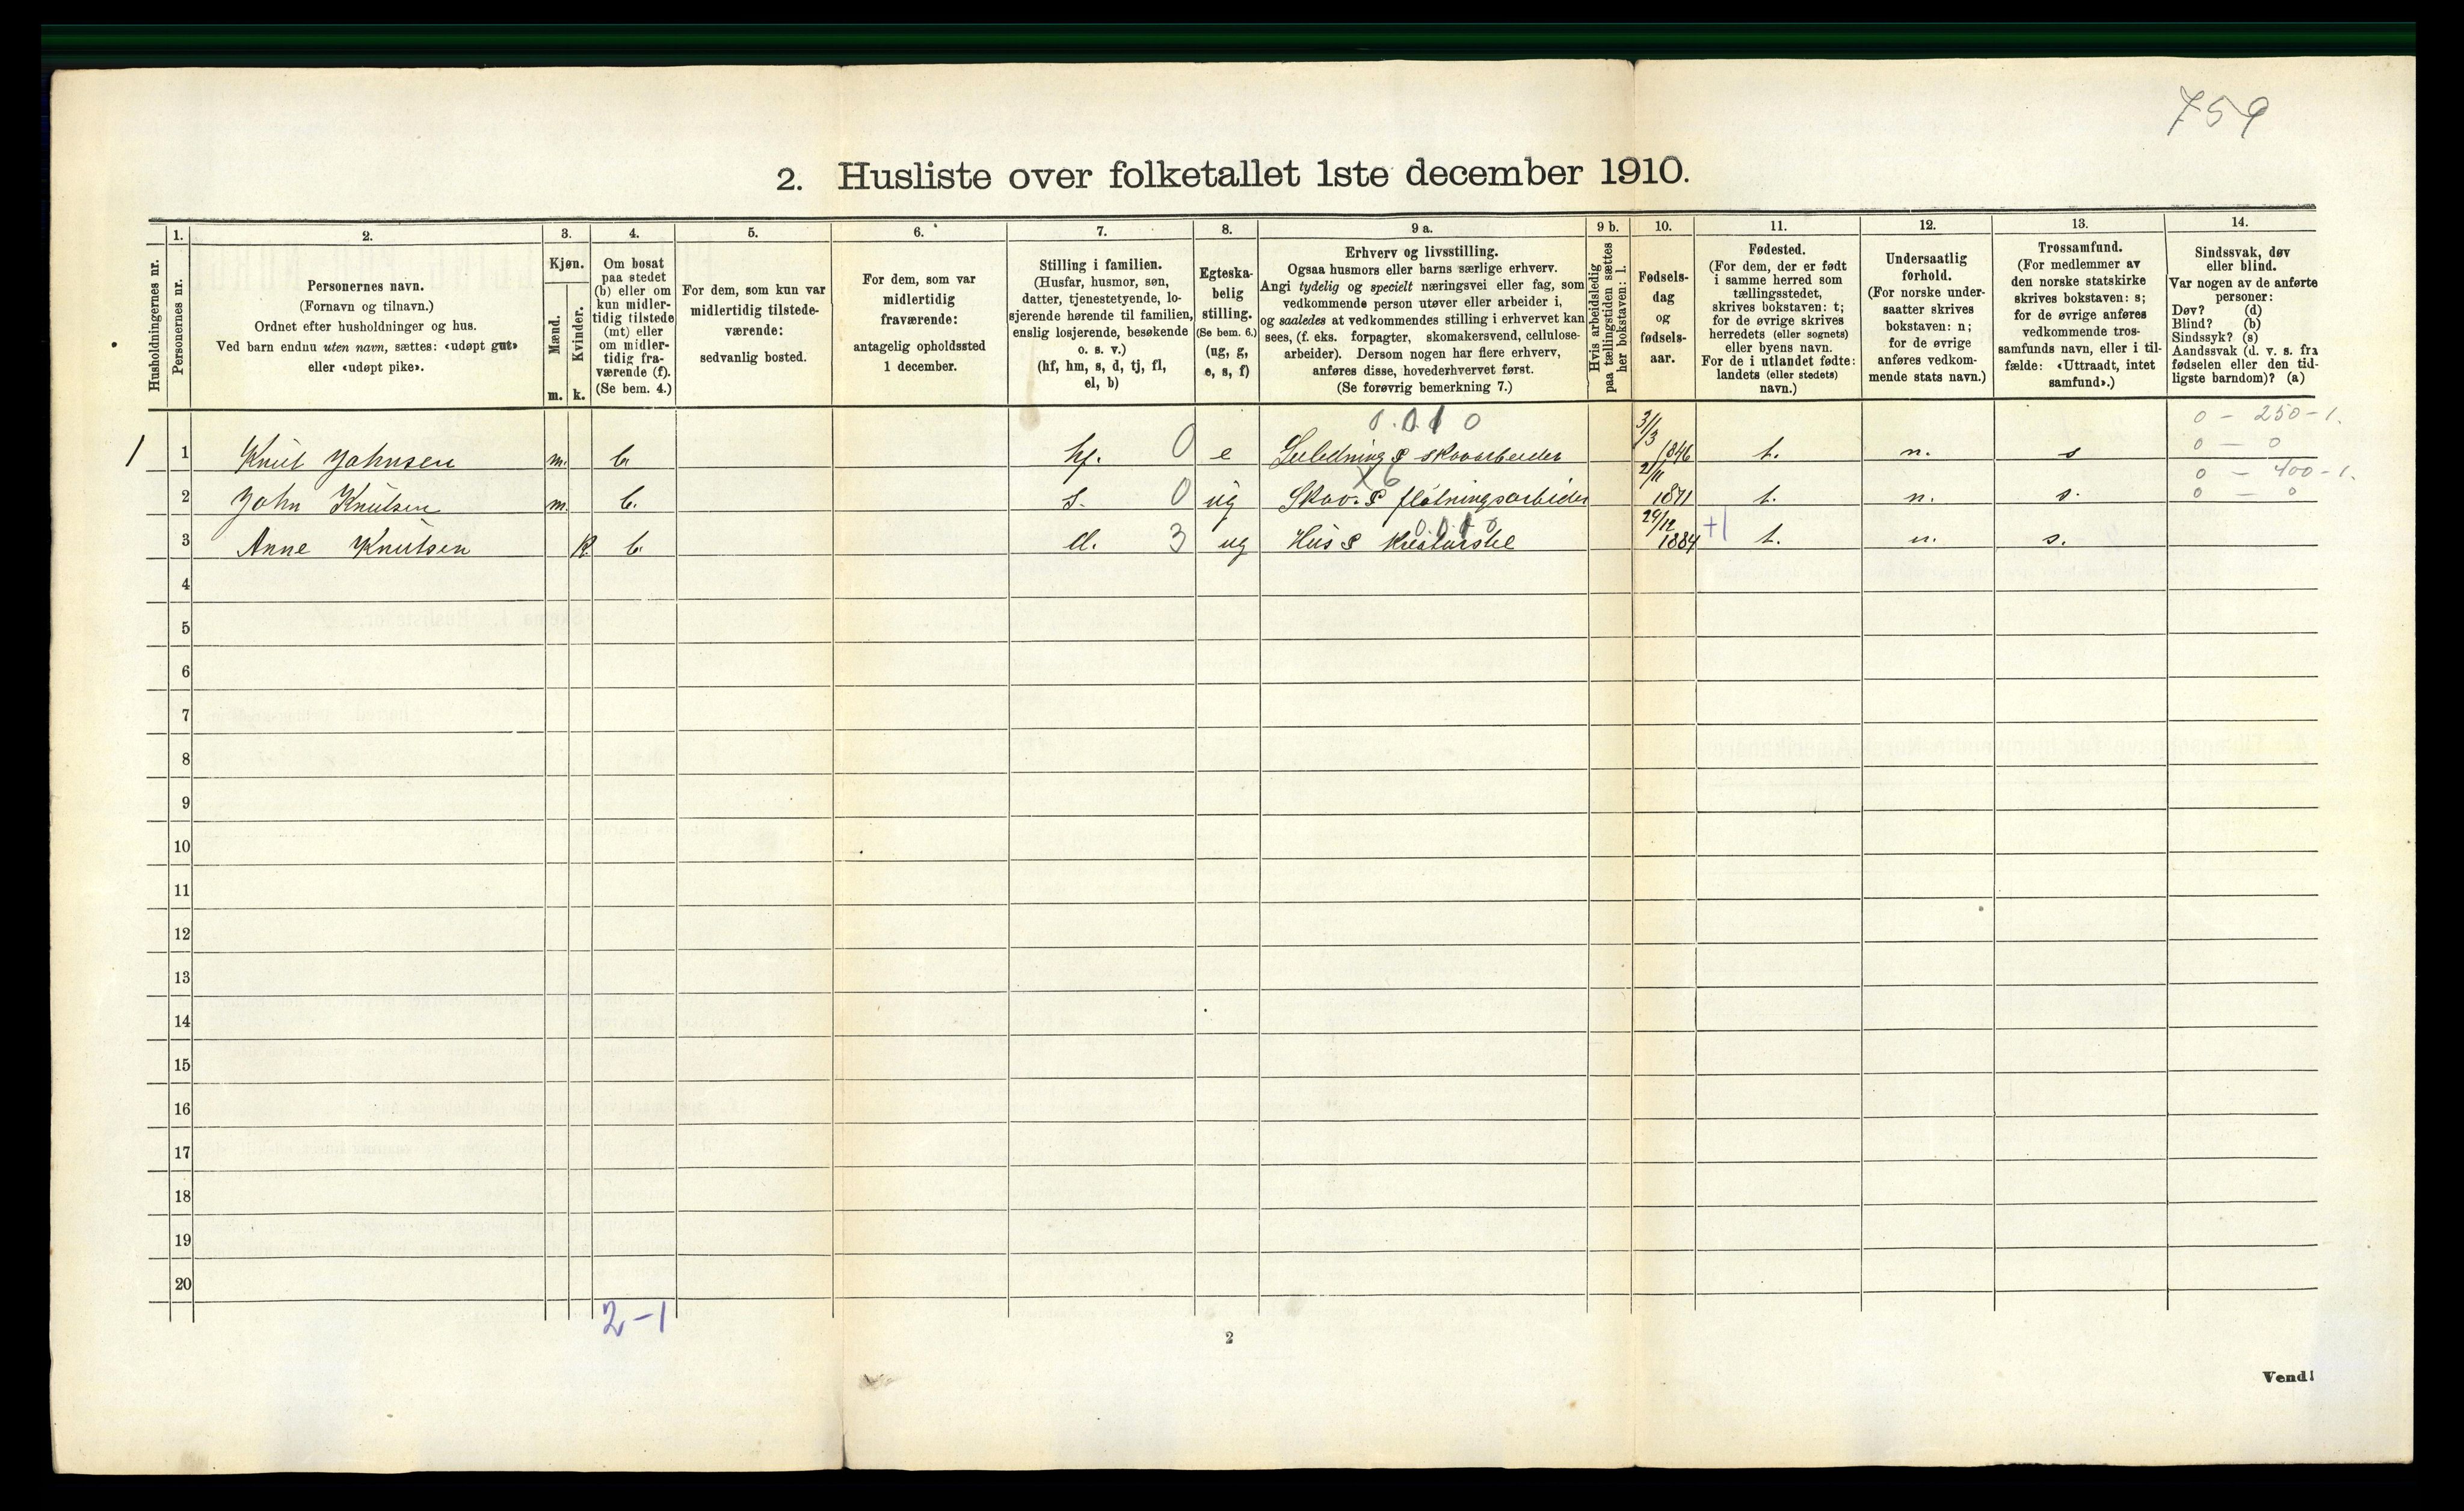 759
2. Husliste over folketallet 1ste december 1910.
Husholdningernes nr.
1.
Personernes nr.
2.
Personernes navn.
(Fornavn og tilnavn.)
Ordnet efter husholdninger og hus.
Ved barn endnu uten navn, sættes: «udøpt gut»
eller «udøpt pike».
3.
Kjøn.
Mænd.
Kvinder.
m. k.
4.
Om bosat
paa stedet
(b) eller om
kun midler-
tidig tilstede
(mt) eller
om midler-
tidig fra-
værende (f).
(Se bem. 4.)
5.
For dem, som kun var
midlertidig tilstede-
værende:
sedvanlig bosted.
6.
For dem, som var
midlertidig
fraværende:
antagelig opholdssted
1 december.
7.
Stilling i familien.
(Husfar, husmor, søn,
datter, tjenestetyende, lo-
sjerende hørende til familien,
enslig losjerende, besøkende
o. s. v.)
(hf, hm, s, d, tj, fl,
el, b)
8.
Egteska-
belig
stilling.
(Se bem. 6.)
(ug, g,
e, s, f)
9 a.
Erhverv og livsstilling.
Ogsaa husmors eller barns særlige erhverv.
Angi tydelig og specielt næringsvei eller fag, som
vedkommende person utøver eller arbeider i,
og saaledes at vedkommendes stilling i erhvervet kan
sees, (f. eks. forpagter, skomakersvend, cellulose-
arbeider). Dersom nogen har flere erhverv,
anføres disse, hovederhvervet først.
(Se forøvrig bemerkning 7.)
9 b.
Hvis arbeidsledig
paa tællingstiden sættes
her bokstaven: l.
10.
Fødsels-
dag
og
fødsels-
aar.
11.
Fødested.
(For dem, der er født
i samme herred som
tællingsstedet,
skrives bokstaven: t;
for de øvrige skrives
herredets (eller sognets)
eller byens navn.
For de i utlandet fødte:
landets (eller stedets)
navn.)
12.
Undersaatlig
forhold.
(For norske under-
saatter skrives
bokstaven: n;
for de øvrige
anføres vedkom-
mende stats navn.)
13.
Trossamfund.
(For medlemmer av
den norske statskirke
skrives bokstaven: s;
for de øvrige anføres
vedkommende tros-
samfunds navn, eller i til-
fælde: «Uttraadt, intet
samfund».)
14.
Sindssvak, døv
eller blind.
Var nogen av de anførte
personer:
Døv? (d)
Blind? (b)
Sindssyk? (s)
Aandssvak (d. v. s. fra
fødselen eller den tid-
ligste barndom)? (a)
0.0.1 0
0 - 250-1.
1 1 Knut Johnsen m. b. hf. 0 e skovarbeider 3/3 1846 t. n. s 0 — 0
X6
0 - 400-1.
2 John Knutsen m. b. s. 0 ug Skov. & fløtningsarbeider 2/11 1871 t. n. s. 0 — 0
3 Anne Knutsen k b. d. 3 ug Hus & Kreaturstel 24/12 1884 +1 t. n. s.
4
5
6
7
8
9
10
11
12
13
14
15
16
17
18
19
20
2-1
2
Vend!